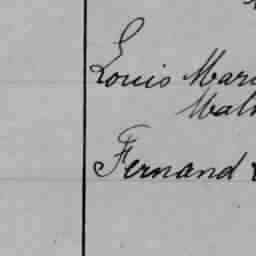 Louis Mari
Mal
Fernand